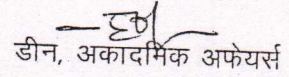 डीन, अकादमिक अफेयर्स